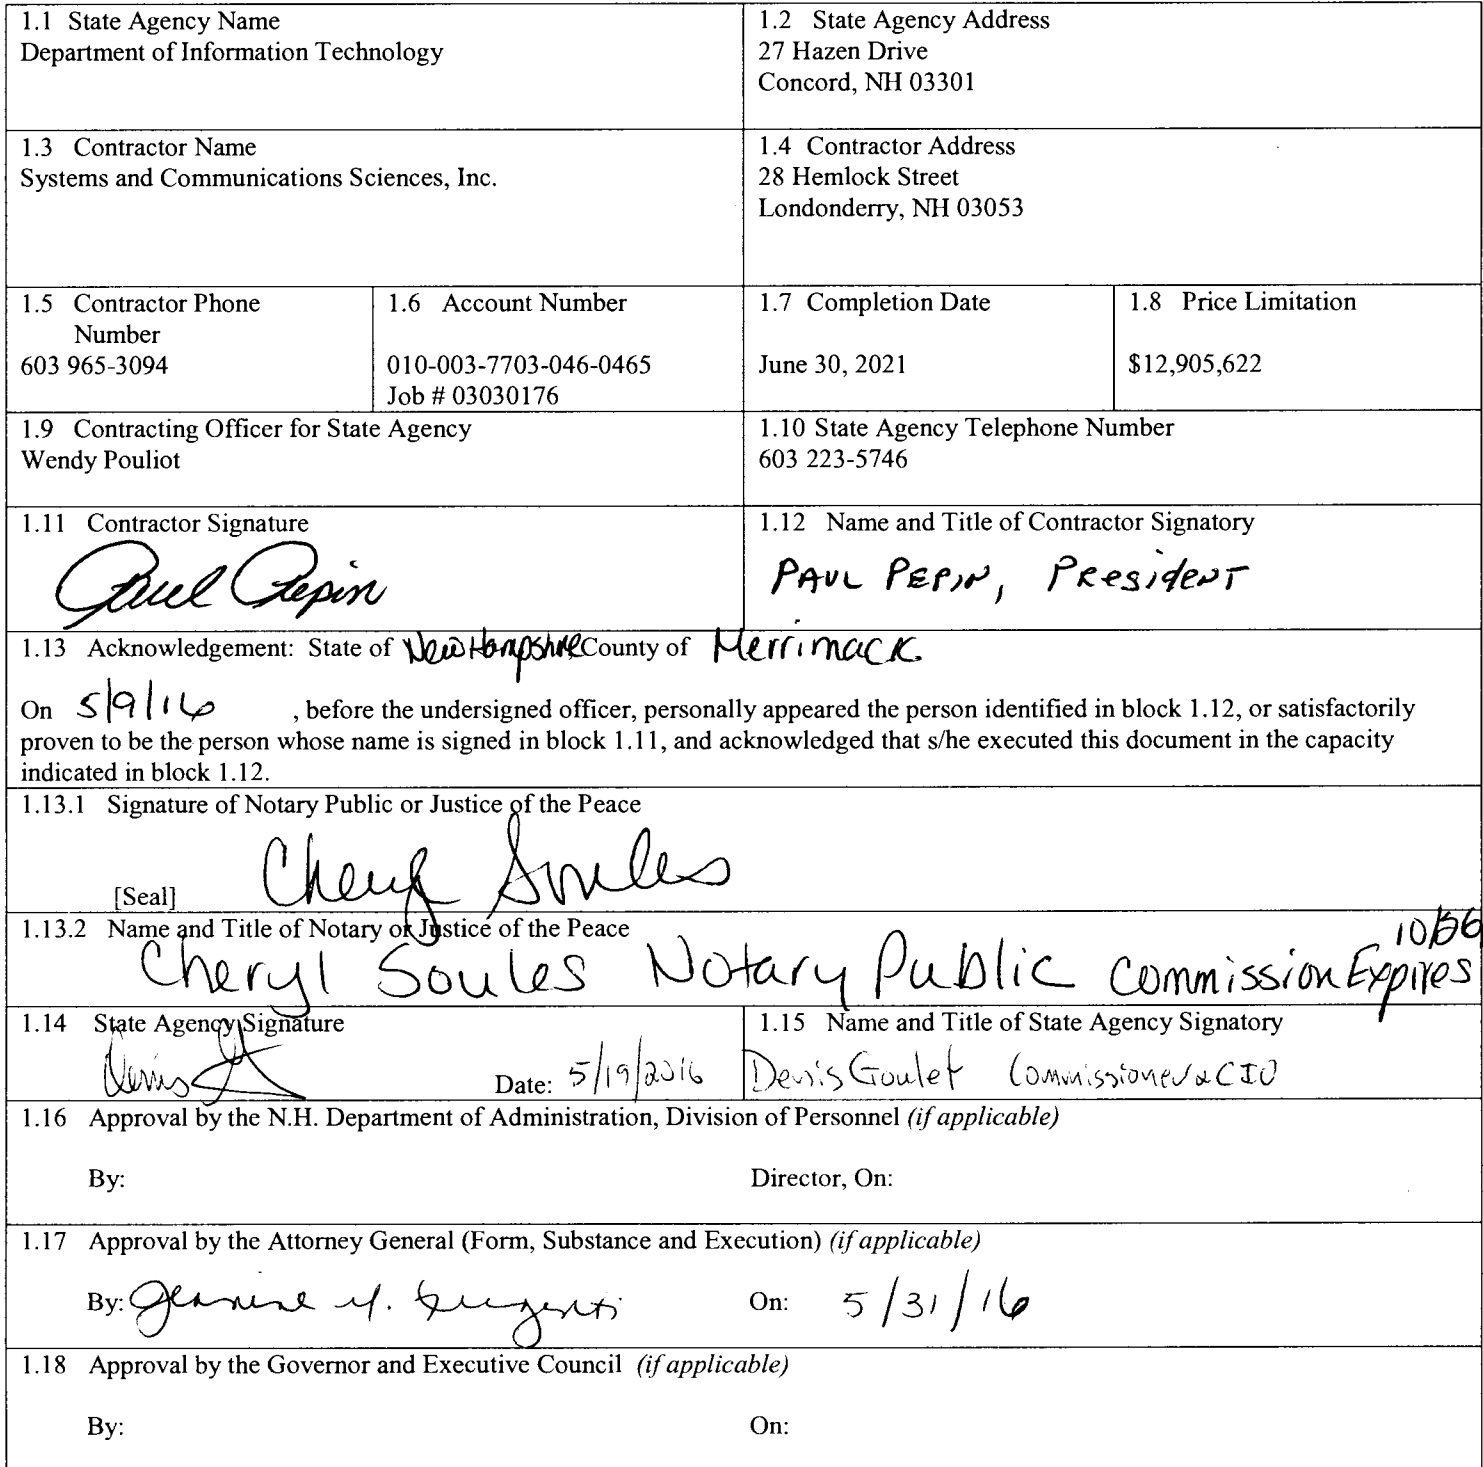 1.1 State Agency Name
Department of Information Technology
1.2 State Agency Address
27 Hazen Drive
Concord, NH 03301
1.3 Contractor Name
Systems and Communications Sciences, Inc.
1.4 Contractor Address
28 Hemlock Street
Londonderry, NH 03053
1.5 Contractor Phone
Number
603 965-3094
1.6 Account Number
010-003-7703-046-0465
Job # 03030176
1.7 Completion Date
June 30, 2021
1.8 Price Limitation
$12,905,622
1.9 Contracting Officer for State Agency
Wendy Pouliot
1.10 State Agency Telephone Number
603 223-5746
1.11 Contractor Signature
Paul Pepin
1.12 Name and Title of Contractor Signatory
PAUL PEPIN, President
1.13 Acknowledgement: State of New Hampshire County of Merrimack
On 5/9/16 , before the undersigned officer, personally appeared the person identified in block 1.12, or satisfactorily
proven to be the person whose name is signed in block 1.11, and acknowledged that s/he executed this document in the capacity
indicated in block 1.12.
1.13.1 Signature of Notary Public or Justice of the Peace
Cheryl Soules
[Seal]
1.13.2 Name and Title of Notary or Justice of the Peace
Cheryl Soules Notary Public Commission Expires
1.14 State Agency Signature
Denis
Date: 5/19/2016
1.15 Name and Title of State Agency Signatory
Denis Goulet Commissioner & CIO
1.16 Approval by the N.H. Department of Administration, Division of Personnel (if applicable)
By: Director, On:
1.17 Approval by the Attorney General (Form, Substance and Execution) (if applicable)
By: On: 5/31/16
1.18 Approval by the Governor and Executive Council (if applicable)
By: On: